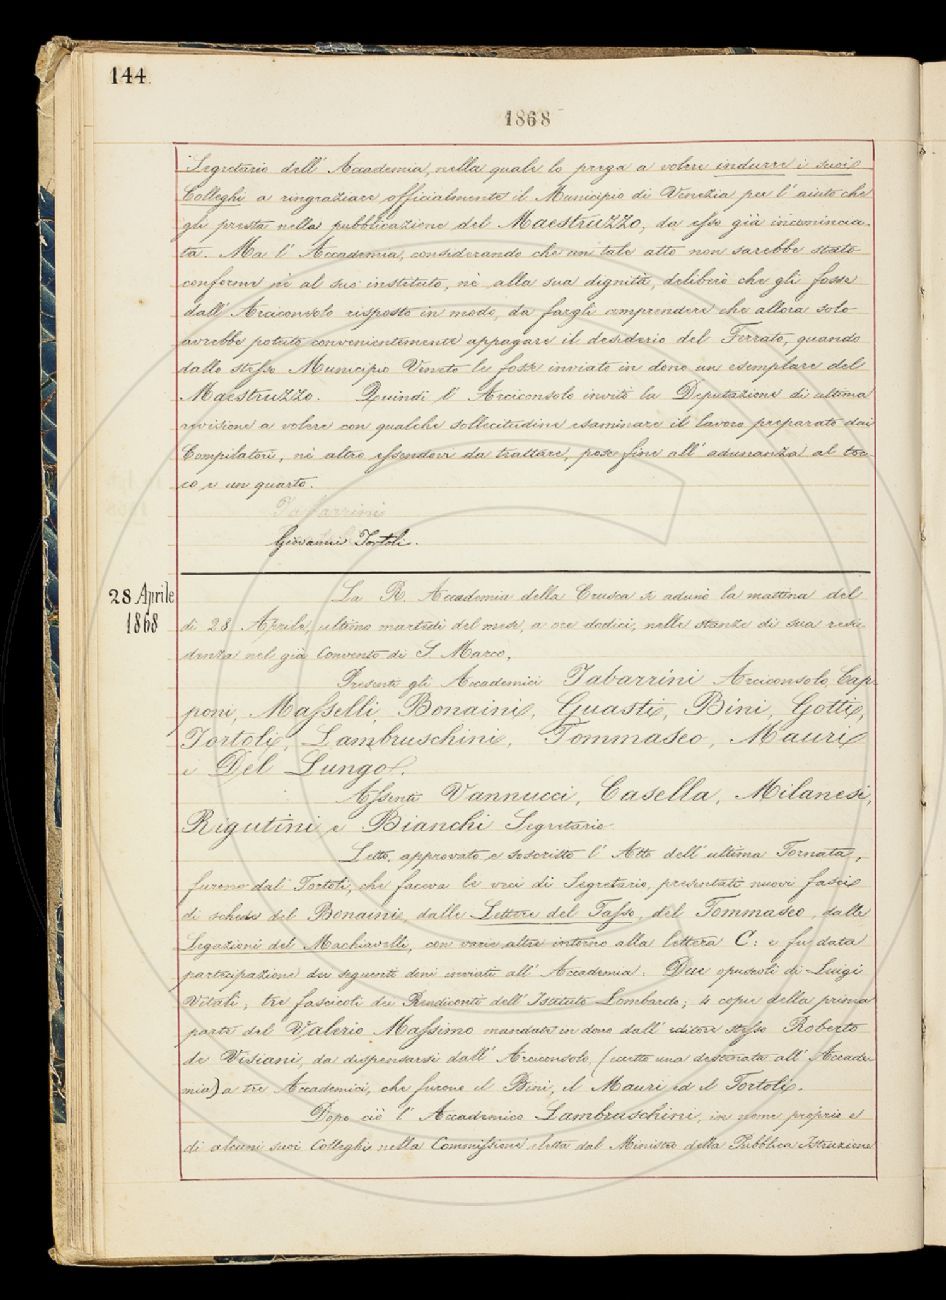 144.
1868
Segretario dell' Accademia, nella quale lo prega a volere indurre i suoi
Colleghi a ringraziare officialmente il Municipio di Venezia per l'aiuto che
gli presta nella pubblicazione del Maestruzzo, da esso già incomincia-
ta. Ma l' Accademia, considerando che un tale atto non sarebbe stato
conforme nè al suo instituto, nè alla sua dignità, deliberò che gli fosse
dall' Arciconsolo risposto in modo, da fargli comprendere che allora solo
avrebbe potuto convenientemente appagare il desiderio del Ferrato, quando
dallo stesso Municipio Veneto le fosse inviato in dono un esemplare del
Maestruzzo. Quindi l' Arciconsolo invitò la Deputazione di ultima
revisione a volere con qualche sollecitudine esaminare il lavoro preparato dai
Compilatori, nè altro essendovi da trattare, pose fine all' adunanza al toc-
co e un quarto.
Tabarrini
Giovanni Tortoli.
28 Aprile
1868
La R. Accademia della Crusca si adunò la mattina del
dì 28 Aprile, ultimo martedì del mese, a ore dodici, nelle stanze di sua resi-
denza nel già Convento di S. Marco.
Presenti gli Accademici Tabarrini Arciconsolo, Cap-
poni, Masselli, Bonaini, Guasti, Bini, Gotti,
Tortoli, Lambruschini, Tommaseo, Mauri
e Del Lungo.
Assenti Vannucci, Casella, Milanesi,
Rigutini e Bianchi Segretario.
Letto, approvato e soscritto l' Atto dell' ultima Tornata,
furono dal Tortoli, che faceva le veci di Segretario, presentati nuovi fasci
di schede del Bonaini, dalle Lettere del Tasso, del Tommaseo, dalle
Legazioni del Machiavelli, con varie altre intorno alla lettera C: e fu data
partecipazione dei seguenti doni inviati all' Accademia: Due opuscoli di Luigi
Vitali; tre fascicoli dei Rendiconti dell' Istituto Lombardo; 4 copie della prima
parte del Valerio Massimo mandate in dono dall' editore stesso Roberto
de Visiani, da dispensarsi dall' Arciconsolo, (eccetto una destinata all' Accade-
mia) a tre Accademici, che furono il Bini, il Mauri ed il Tortoli.
Dopo ciò l' Accademico Lambruschini, in nome proprio e
di alcuni suoi Colleghi nella Commissione eletta dal Ministro della Pubblica Istruzione